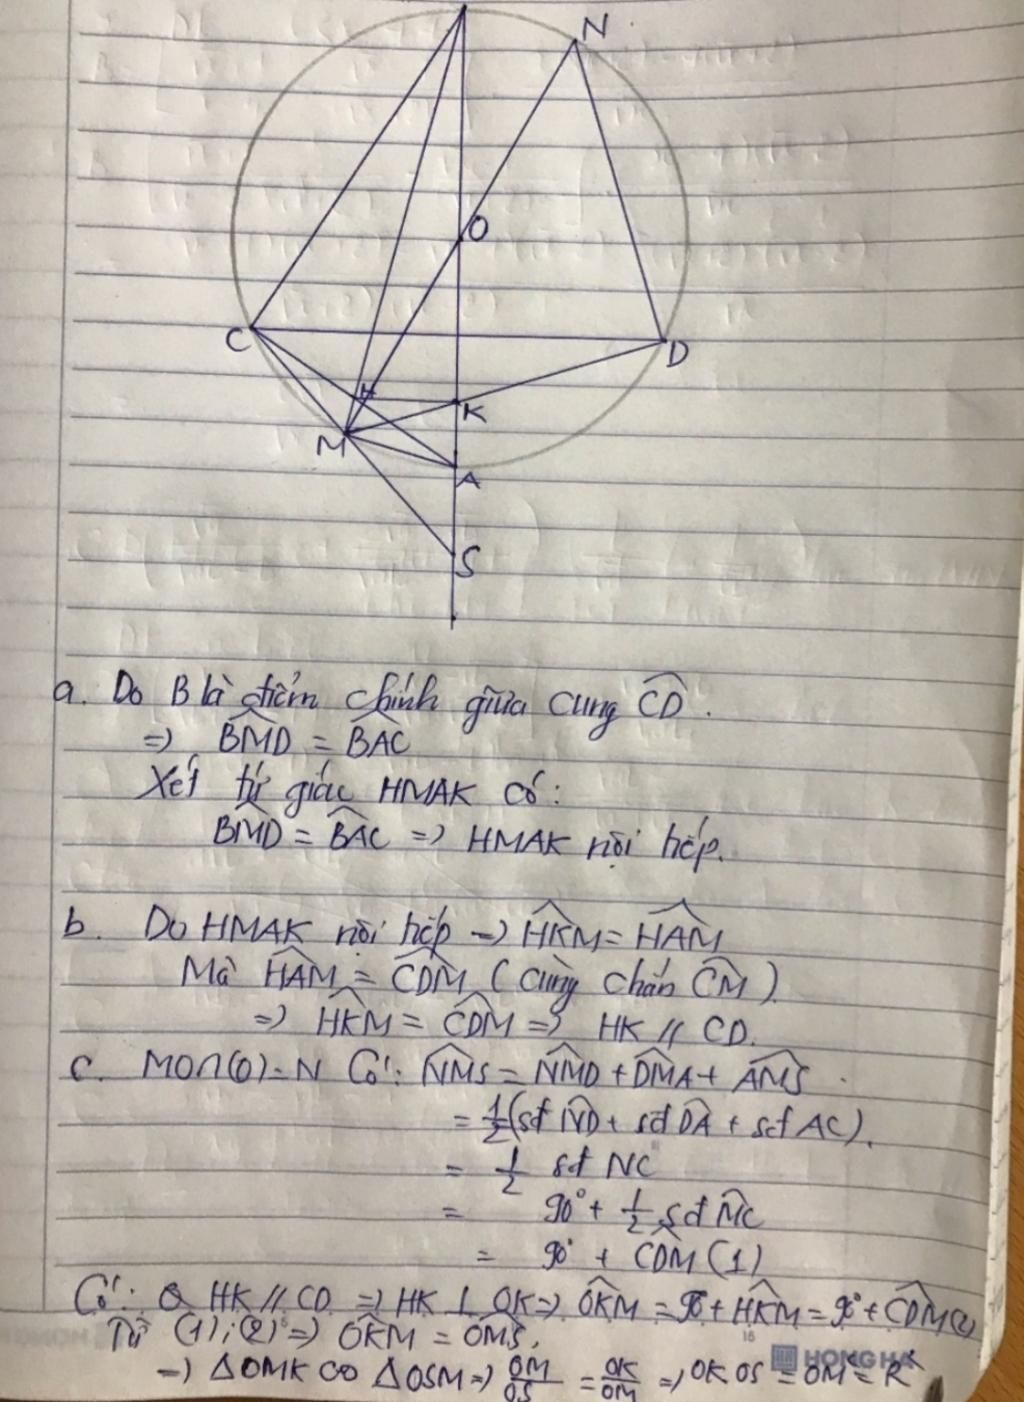 N
O
C
D
H
K
M
A
S
a. Do B là điểm chính giữa cung CD.
=> BMD = BAC
Xét tứ giác HMAK có:
BMD = BAC => HMAK nội tiếp.
b. Do HMAK nội tiếp => HKM = HAM
Mà HAM = CDM (cùng chắn CM)
=> HKM = CDM => HK // CD.
c. MO∩(O) = N Có: NMS = NMD + DMA + AMS.
= 1/2 (sđ ND + sđ DA + sđ AC).
= 1/2 sđ NC
= 90° + 1/2 sđ MC
= 90° + CDM (1)
Có: HK // CD => HK ⊥ OK => OKM = 90° + HKM = 90° + CDM (2)
Từ (1); (2) => OKM = OMS.
=> ΔOMK ∽ ΔOSM => OM/OS = OK/OM => OK OS = OM² = R²
16
HONG HA